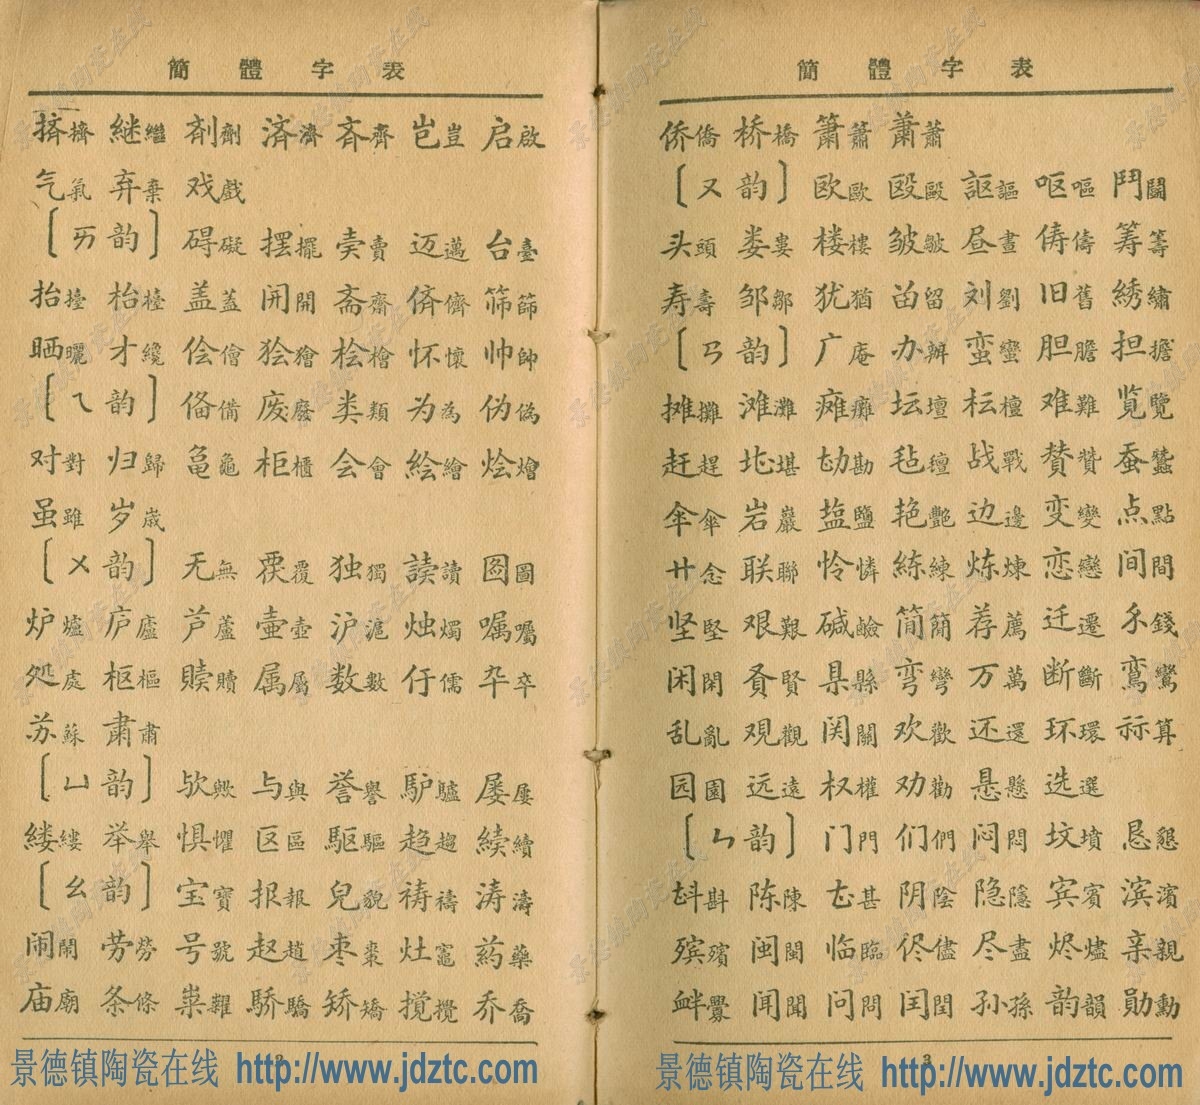 簡體字表
挤擠 継繼 剤劑 済濟 斉齊 岂豈 启啟
气氣 弃棄 戏戲
〔ㄞ韵〕 碍礙 摆擺 卖賣 迈邁 台臺
抬擡 枱檯 盖蓋 开開 斋齋 侪儕 筛篩
晒曬 才纔 侩儈 狯獪 桧檜 怀懷 帅帥
〔ㄟ韵〕 俻備 废廢 类類 为為 伪偽
对對 归歸 亀龜 柜櫃 会會 絵繪 烩燴
虽雖 岁歲
〔ㄨ韵〕 无無 覆 独獨 読讀 图圖
炉爐 庐廬 芦蘆 壷壺 沪滬 烛燭 嘱囑
処處 枢樞 赎贖 属屬 数數 儒 卆卒
苏蘇 粛肅
〔ㄩ韵〕 欤歟 与與 誉譽 馿驢 屡屢
缕縷 举舉 惧懼 区區 駆驅 趋趨 続續
〔ㄠ韵〕 宝寶 报報 皃貌 祷禱 涛濤
闹鬧 劳勞 号號 赵趙 枣棗 灶竈 药藥
庙廟 条條 糶 驕 矫矯 搅攪 乔喬
簡體字表
侨僑 桥橋 箫簫 萧蕭
〔ㄡ韵〕 欧歐 殴毆 謳 呕嘔 鬥鬪
头頭 娄婁 楼樓 皱皺 昼晝 俦儔 筹籌
寿壽 邹鄒 犹猶 留 刘劉 旧舊 綉繡
〔ㄢ韵〕 广庵 办辦 蛮蠻 胆膽 担擔
摊攤 滩灘 瘫癱 坛壇 枟檀 难難 览覽
赶趕 堪 勘 毡氈 战戰 赞贊 蚕蠶
伞傘 岩巖 塩鹽 艳艷 边邊 变變 点點
廿念 联聯 怜憐 練 炼煉 恋戀 间間
坚堅 艰艱 碱鹼 简簡 荐薦 迁遷 錢
闲閑 贤賢 县縣 弯彎 万萬 断斷 鸾鸞
乱亂 观觀 関關 欢歡 还還 环環 祘算
园園 远遠 权權 劝勸 悬懸 选選
〔ㄣ韵〕 门門 们們 闷悶 坟墳 恳懇
斟 陈陳 甚 阴陰 隐隱 宾賓 滨濱
殡殯 闽閩 临臨 侭儘 尽盡 烬燼 亲親
衅釁 闻聞 问問 闰閏 孙孫 韵韻 勛勳
3
景德镇陶瓷在线 http://www.jdztc.com
景德镇陶瓷在线 http://www.jdztc.com